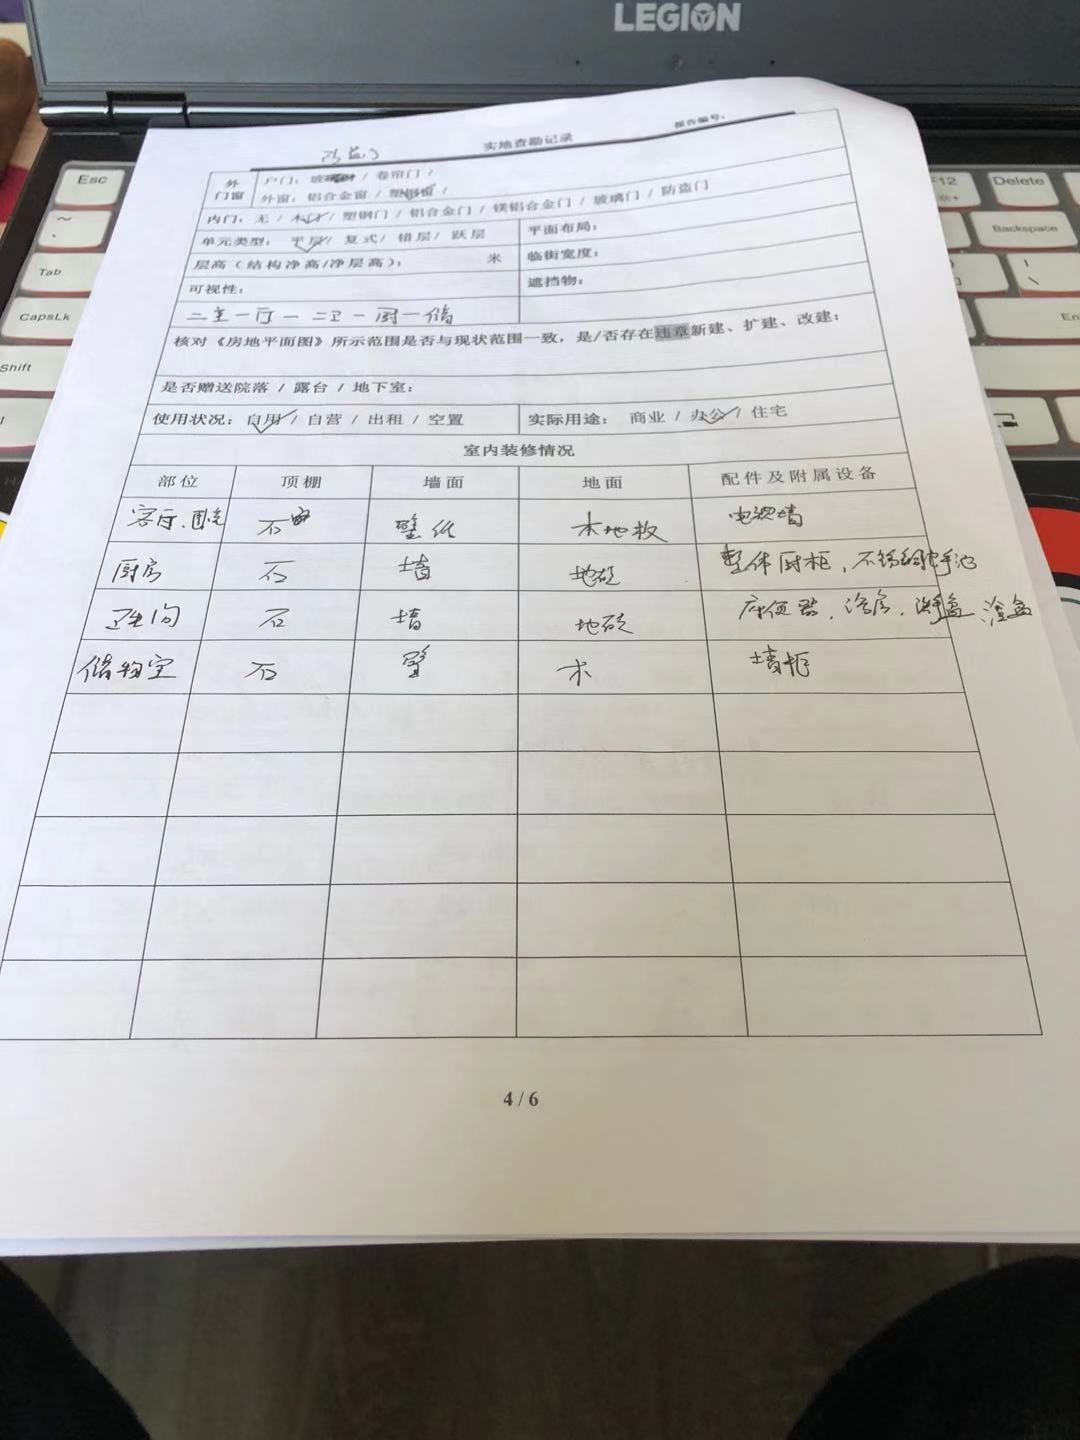 LEGION
Esc
F12
Delete
Backspace
Tab
CapsLk
Shift
实地查勘记录
报告编号:
防盗门
外门窗
户门: / 卷帘门 /
外窗: 铝合金窗 / 塑钢窗 /
内门: 无 / 木门 / 塑钢门 / 铝合金门 / 镁铝合金门 / 玻璃门 / 防盗门
单元类型: 平层 / 复式 / 错层 / 跃层
平面布局:
层高(结构净高/净层高): 米
临街宽度:
可视性:
遮挡物:
二室一厅一 二卫一厨一储
核对《房地平面图》所示范围是否与现状范围一致,是/否存在违章新建、扩建、改建:
是否赠送院落 / 露台 / 地下室:
使用状况: 自用 / 自营 / 出租 / 空置
实际用途: 商业 / 办公 / 住宅
室内装修情况
部位 顶棚 墙面 地面 配件及附属设备
客厅、 石 壁纸 木地板 电视墙
厨房 石 墙 地砖 整体厨柜, 不锈钢洗手池
卫生间 石 墙 地砖 座便器, 浴房, 浴盆
储物室 石 壁 木 墙柜
4 / 6